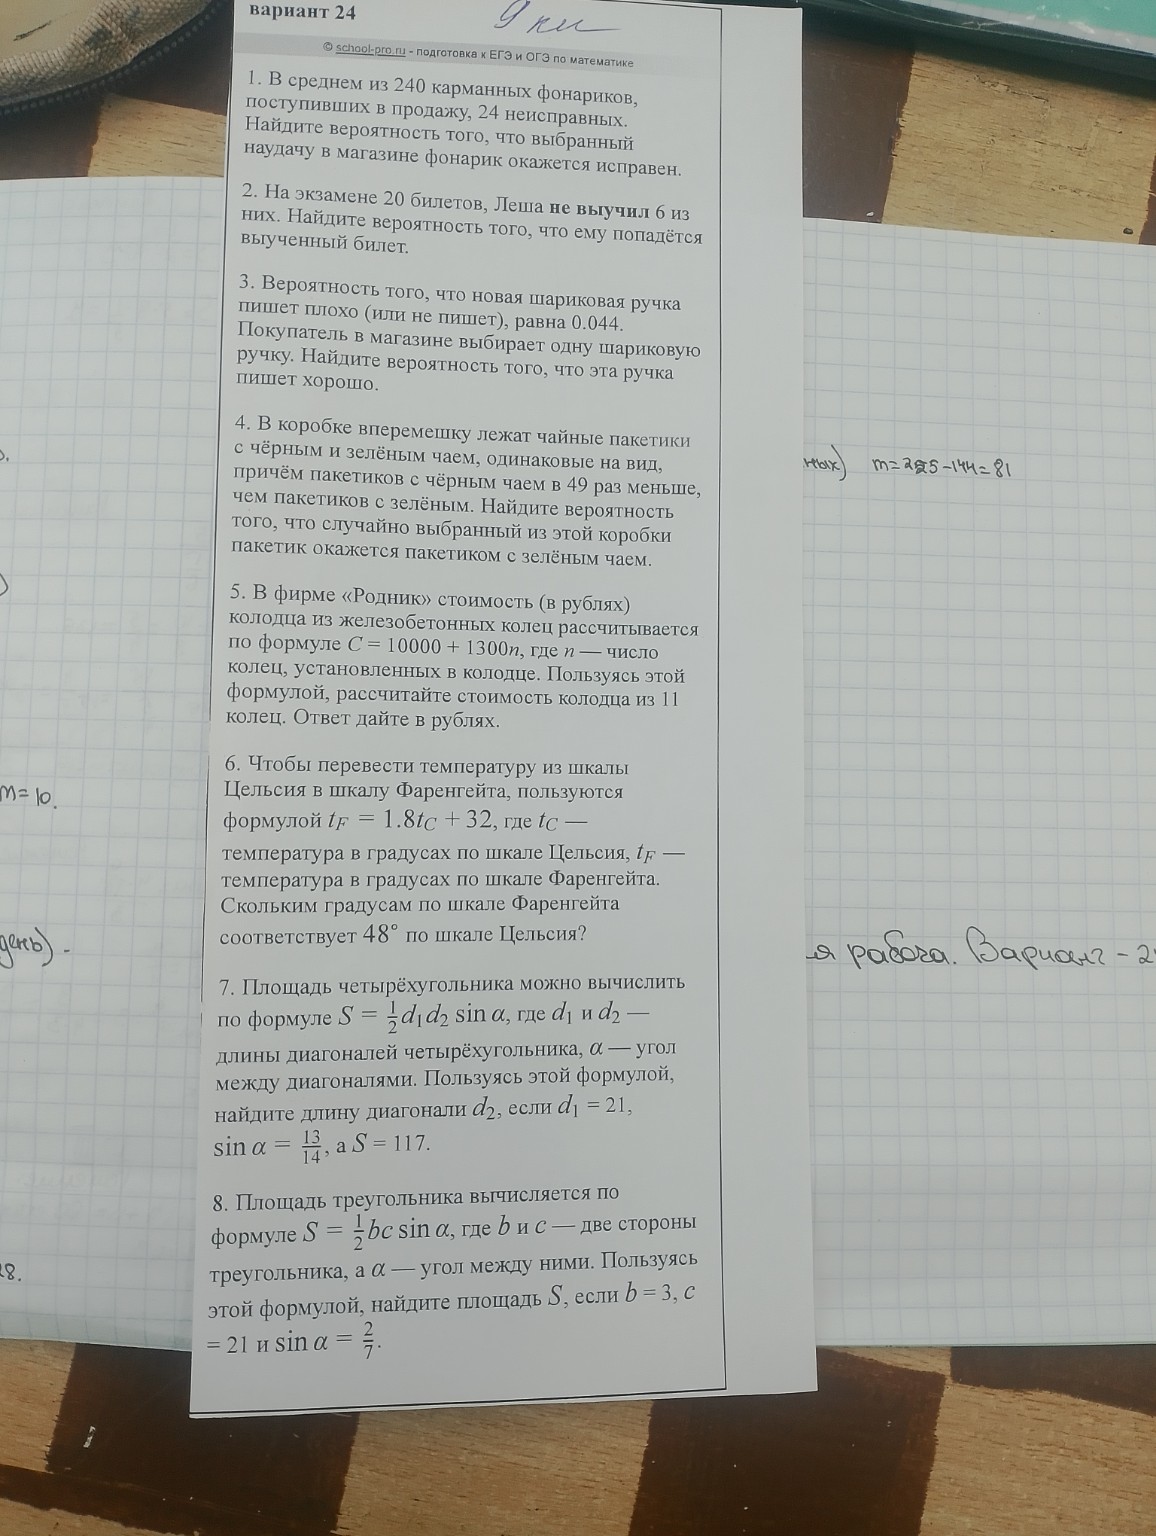 вариант 24
9 кл
© school-pro.ru - подготовка к ЕГЭ и ОГЭ по математике
1. В среднем из 240 карманных фонариков,
поступивших в продажу, 24 неисправных.
Найдите вероятность того, что выбранный
наудачу в магазине фонарик окажется исправен.
2. На экзамене 20 билетов, Леша не выучил 6 из
них. Найдите вероятность того, что ему попадётся
выученный билет.
3. Вероятность того, что новая шариковая ручка
пишет плохо (или не пишет), равна 0.044.
Покупатель в магазине выбирает одну шариковую
ручку. Найдите вероятность того, что эта ручка
пишет хорошо.
4. В коробке вперемешку лежат чайные пакетики
с чёрным и зелёным чаем, одинаковые на вид,
причём пакетиков с чёрным чаем в 49 раз меньше,
чем пакетиков с зелёным. Найдите вероятность
того, что случайно выбранный из этой коробки
пакетик окажется пакетиком с зелёным чаем.
5. В фирме «Родник» стоимость (в рублях)
колодца из железобетонных колец рассчитывается
по формуле C = 10000 + 1300n, где n — число
колец, установленных в колодце. Пользуясь этой
формулой, рассчитайте стоимость колодца из 11
колец. Ответ дайте в рублях.
6. Чтобы перевести температуру из шкалы
Цельсия в шкалу Фаренгейта, пользуются
формулой tF = 1.8tC + 32, где tC —
температура в градусах по шкале Цельсия, tF —
температура в градусах по шкале Фаренгейта.
Скольким градусам по шкале Фаренгейта
соответствует 48° по шкале Цельсия?
7. Площадь четырёхугольника можно вычислить
по формуле S = 1/2 d1d2 sin α, где d1 и d2 —
длины диагоналей четырёхугольника, α — угол
между диагоналями. Пользуясь этой формулой,
найдите длину диагонали d2, если d1 = 21,
sin α = 13/14, а S = 117.
8. Площадь треугольника вычисляется по
формуле S = 1/2 bc sin α, где b и c — две стороны
треугольника, а α — угол между ними. Пользуясь
этой формулой, найдите площадь S, если b = 3, c
= 21 и sin α = 2/7.
m=10.
день).
28.
ных) m=225-144=81
я работа. Вариант - 2